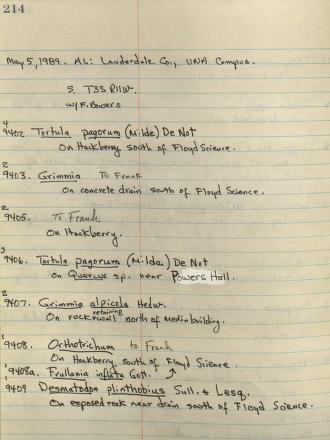 214
May 5, 1989. AL: Lauderdale Co., UNA Campus.
S. T3S R11W.
w/F. Bowers
4
9402 Tortula pagorum (Milde) De Not
On Hackberry south of Floyd Science.
2
9403. Grimmia To Frank
On concrete drain south of Floyd Science.
2
9405. To Frank
On Hackberry.
3
9406. Tortula pagorum (Milde) De Not
on Quercus sp. near Powers Hall.
2
9407. Grimmia alpicola Hedw.
retaining
On rock wall north of Media building.
1
9408. Orthotrichum to Frank
On Hackberry south of Floyd Science.
1
9408a. Frullania inflata Gott.
1
9409 Desmatodon plinthobius Sull. & Lesq.
On exposed rock near drain south of Floyd Science.